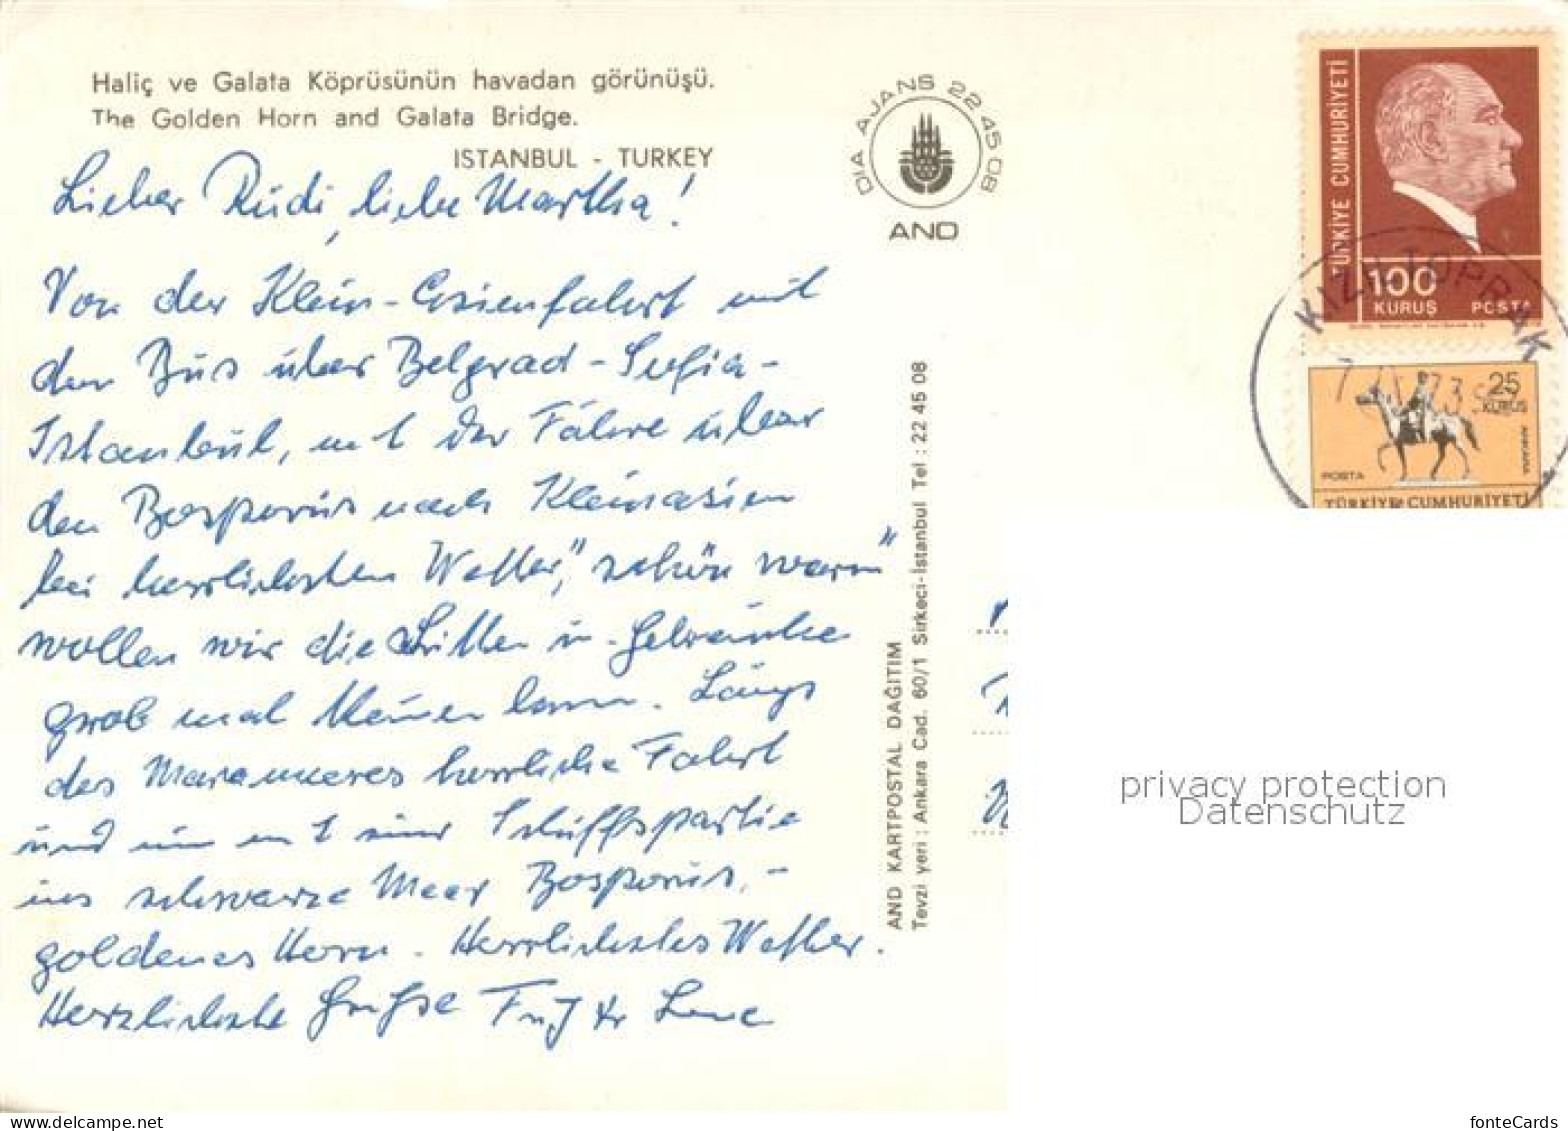 Haliç ve Galata Köprüsünün havadan görünüşü.
The Golden Horn and Galata Bridge.
ISTANBUL - TURKEY
DIA AJANS 22 45 08
AND
Lieber Rudi, liebe Martha!
Von der Klein-Asienfahrt mit
dem Bus über Belgrad-Sofia-
Istanbul, mit der Fähre über
den Bosporus nach Kleinasien
bei herrlichsten Wetter, "schön warm"
wollen wir die Sitten u. Gebräuche
grob mal kennen lernen. Längs
des Marameeres herrliche Fahrt
und nun mit einer Schiffspartie
ins schwarze Meer Bosporus, -
goldenes Horn. Herrlichstes Wetter.
Herzlichste Grüße
AND KARTPOSTAL DAĞITIM
Tevzi yeri : Ankara Cad. 60/1 Sirkeci-İstanbul Tel : 22 45 08
TÜRKİYE CUMHURİYETİ
100
KURUŞ POSTA
KIZILTOPRAK
25
KURUŞ
ANKARA
POSTA
TÜRKİYE CUMHURİYETİ
privacy protection
Datenschutz
https://www.delcampe.net
fonteCards